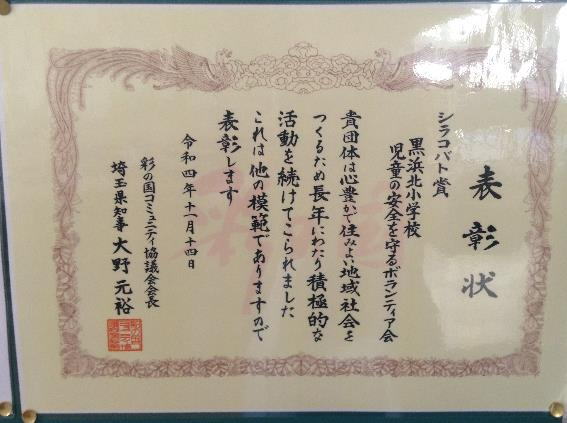 表彰状
シラコバト賞
黒浜北小学校
児童の安全を守るボランティア会
貴団体は心豊かで住みよい地域社会を
つくるため長年にわたり積極的な
活動を続けてこられました
これは他の模範でありますので
表彰します
令和四年十一月十四日
彩の国コミュニティ協議会会長
埼玉県知事 大野元裕